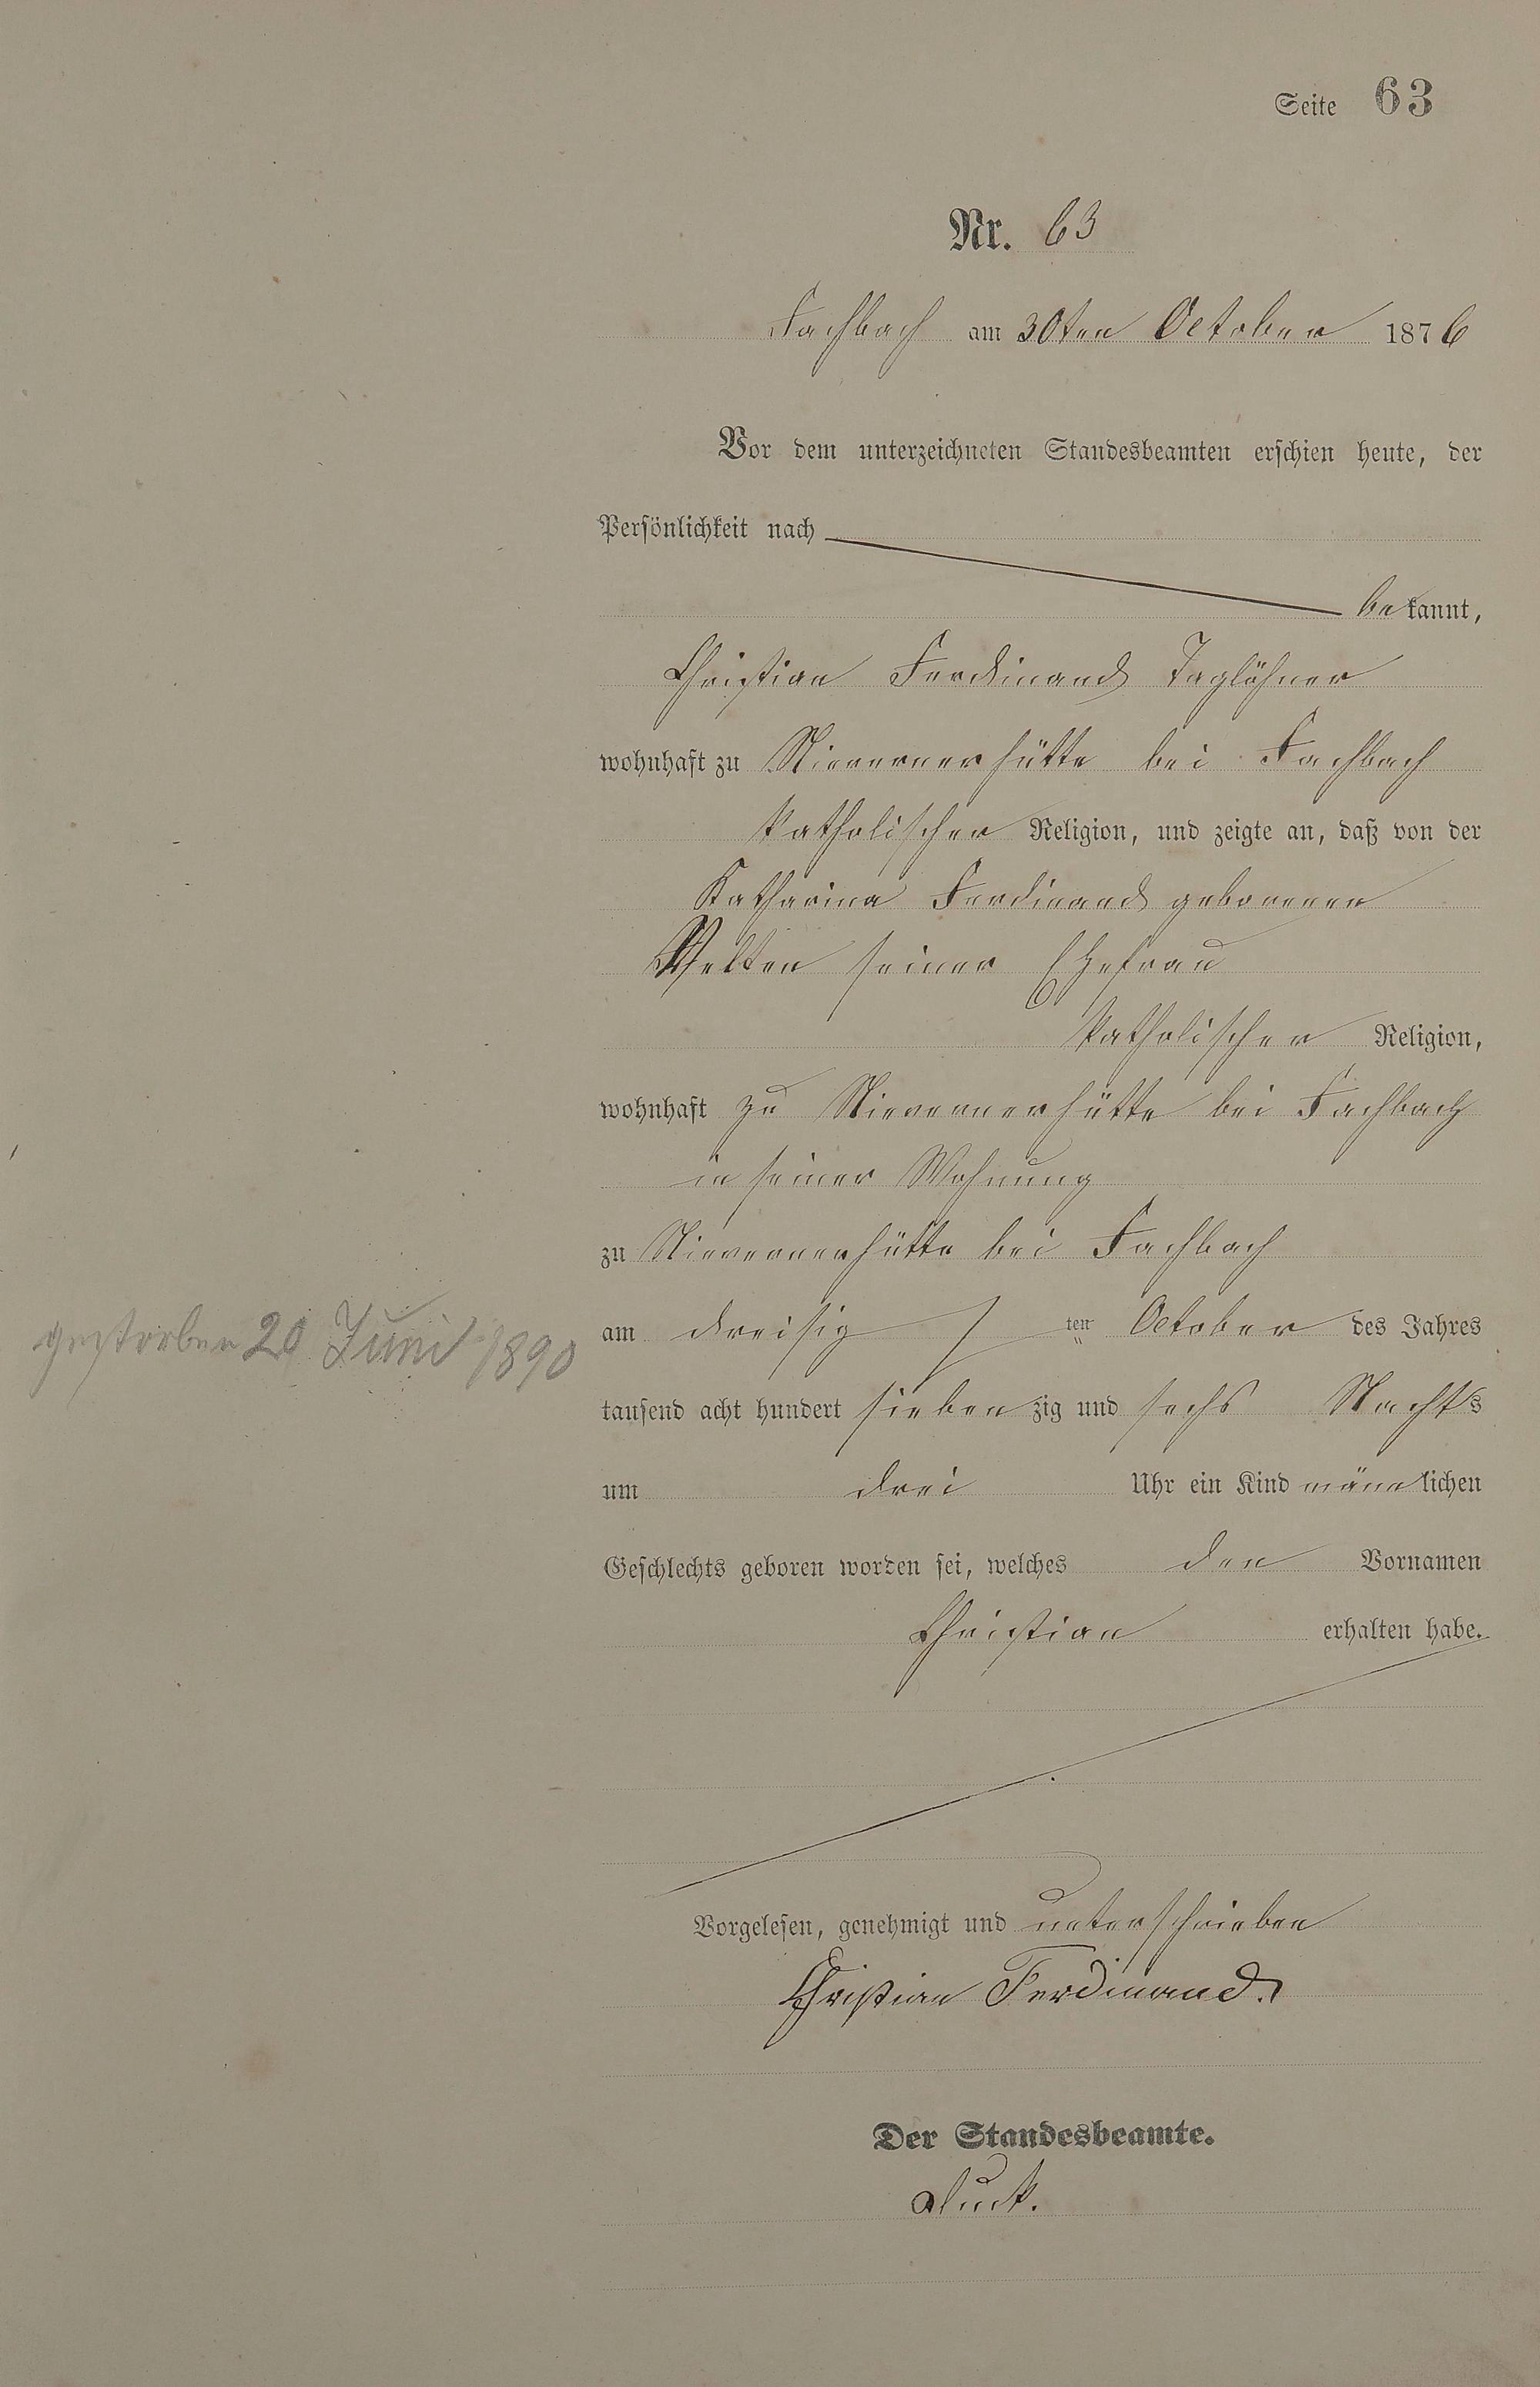 Seite 63
Nr. 63
Fachbach am 30ten October 1876
Vor dem unterzeichneten Standesbeamten erschien heute, der
Persönlichkeit nach
bekannt,
Christian Ferdinand Taglöhner
wohnhaft zu Nievernerhütte bei Fachbach
katholischer Religion, und zeigte an, daß von der
Katharina Ferdinand geborenen
seiner Ehefrau
katholischer Religion,
wohnhaft zu Nievernerhütte bei Fachbach
in seiner Wohnung
zu Nievernerhütte bei Fachbach
gestorben 20 Juni 1890
am dreisig ten October des Jahres
tausend acht hundert siebenzig und sechs Nachts
um drei Uhr ein Kind männlichen
Geschlechts geboren worden sei, welches den Vornamen
Christian erhalten habe.
Vorgelesen, genehmigt und unterschrieben
Christian Ferdinand.
Der Standesbeamte.